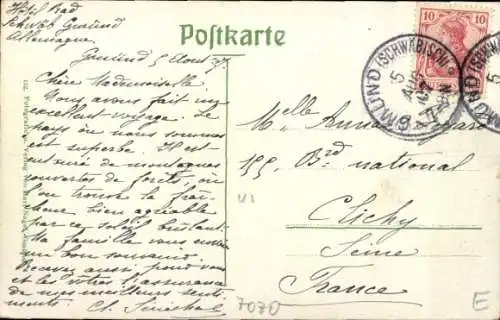 Hôtel Rad
Schwäb Gmünd
Allemagne
Postkarte
Gmünd 5 Aout
Chère Mademoiselle
Nous avons fait un
excellent voyage. Le
pays où nous sommes
est superbe. Il est
entouré de montagnes
couvertes de forêts, où
l'on trouve la fraî-
cheur bien agréable
par ce soleil brûlant.
Ma famille vous envoie
un bon souvenir.
Recevez aussi pour vous
et les vôtres l'assurance
de mes meilleurs senti
ments.
10 10
GMÜND (SCHWÄBISCH)
5
AUG
Melle Anna
155. Bd national
Clichy
Seine
France
7070
E